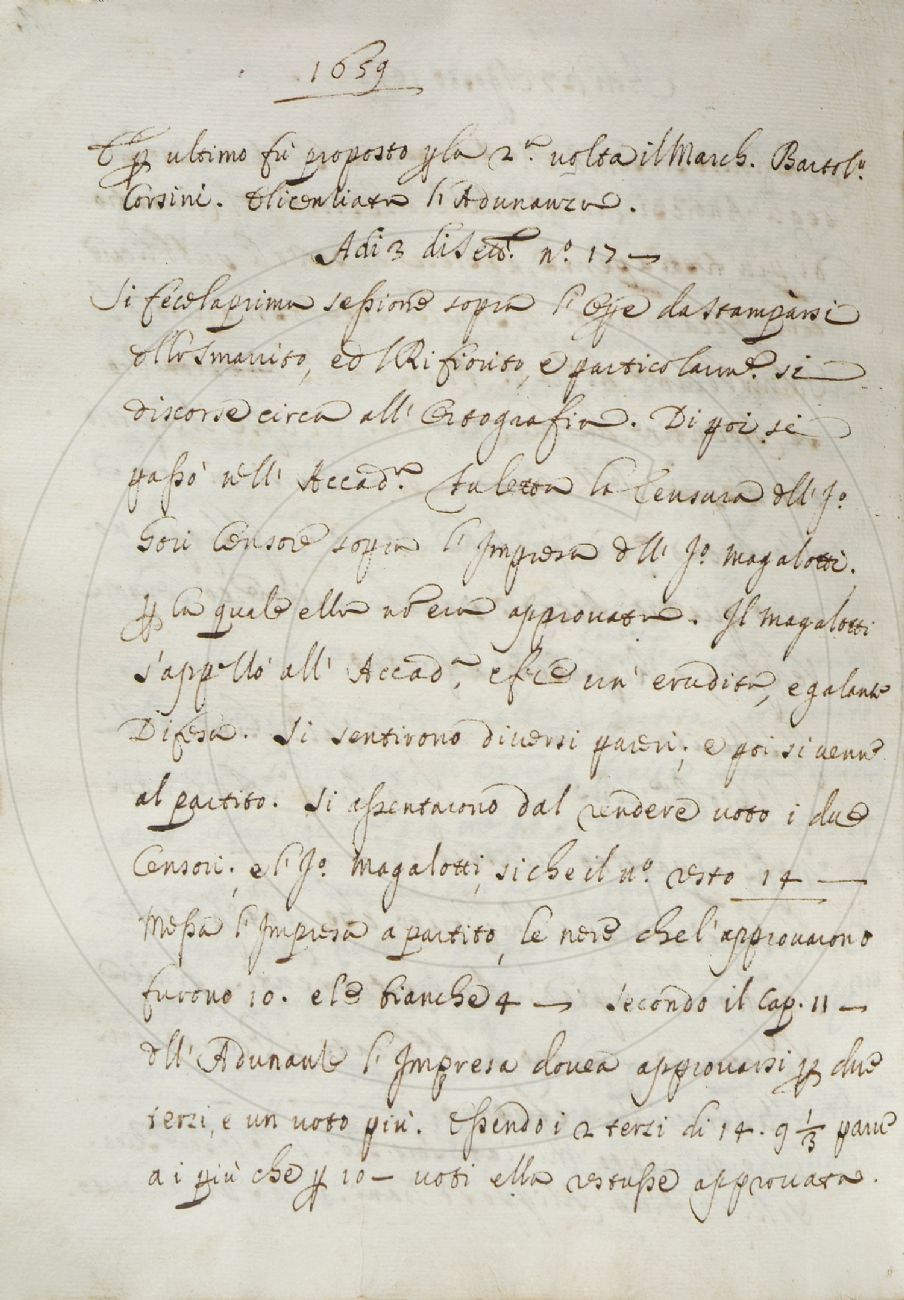 1659
E p ultimo fù proposto p la 2.a volta il March. Bartol.o
Corsini. E licenziata l'Adunanza.
Adi 3 di Sett.e n.o 17 —
Si fece la prima sessione sopra l' da stamparsi
dllo Smarrito, ed l Rifiorito, e particolarm.e si
discorse circa all' Ortografia. Di poi si
passò nell' Accad.a fu letta la Censura dll' J.o
Gori Censore sopra l'Impresa dll' J.o Magalotti.
p la quale ella nō era approvata. Il Magalotti
s'appellò all' Accad.a, e fece un' erudita, e galante
Difesa. Si sentirono diversi pareri; e poi si venne
al partito. Si assentarono dal rendere voto i due
Censori; e l' J.o Magalotti, siche il n.o restò 14 —
Messa l'Impresa a partito, le nere che l'approvarono
furono 10. e le bianche 4 — Secondo il Cap. 11 —
dll' Adunanze l'Impresa dovea approvarsi p due
terzi, e un voto più. Essendo i 2 terzi di 14. 9 1/3 parve
a i più che p 10 — voti ella restasse approvata.